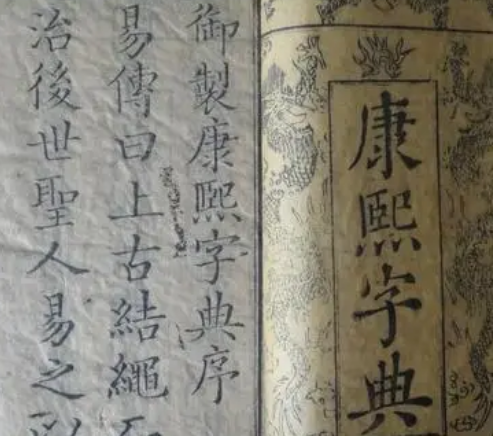 康熙字典
御製康熙字典序
易傳曰上古結繩
治後世聖人易之